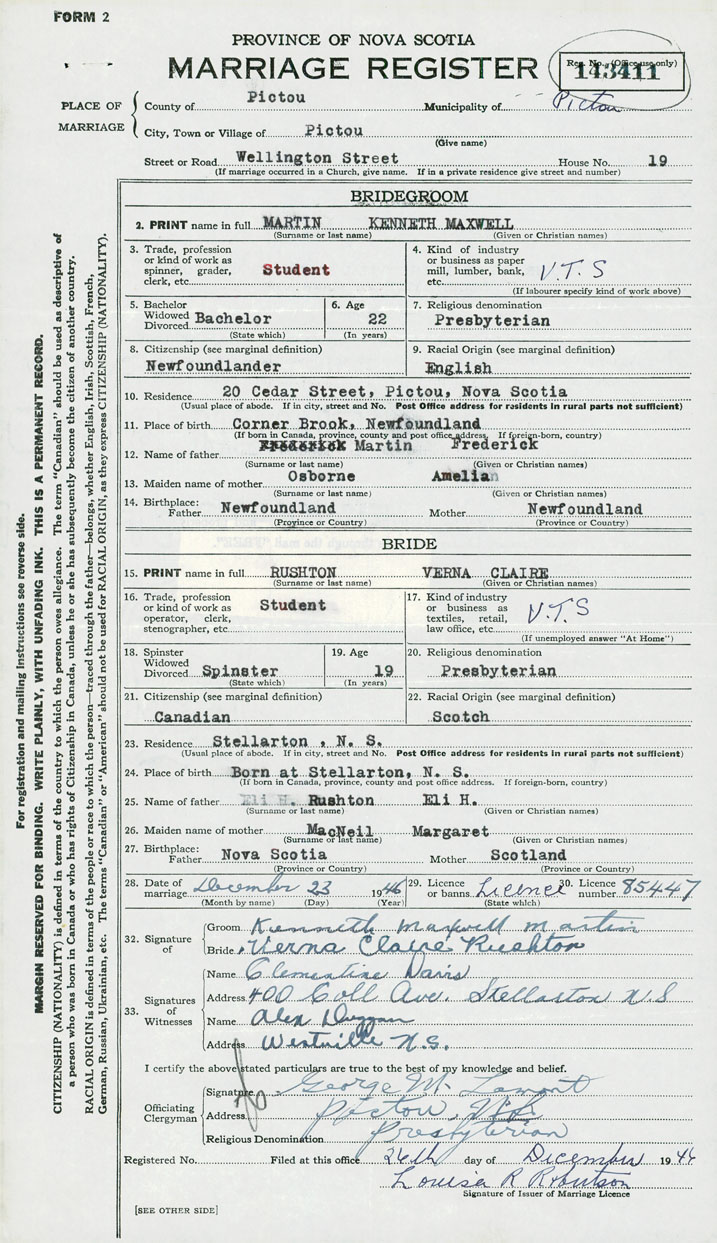 FORM 2
PROVINCE OF NOVA SCOTIA
MARRIAGE REGISTER
Reg. No. (Office use only)
143411
PLACE OF MARRIAGE
County of Pictou Municipality of Pictou
City, Town or Village of Pictou
(Give name)
Street or Road Wellington Street House No. 19
(If marriage occurred in a Church, give name. If in a private residence give street and number)
BRIDEGROOM
2. PRINT name in full MARTIN KENNETH MAXWELL
(Surname or last name) (Given or Christian names)
3. Trade, profession or kind of work as spinner, grader, clerk, etc. Student
4. Kind of industry or business as paper mill, lumber, bank, etc. V.T.S
(If labourer specify kind of work above)
5. Bachelor Widowed Divorced Bachelor
(State which)
6. Age 22
(In years)
7. Religious denomination
Presbyterian
8. Citizenship (see marginal definition)
Newfoundlander
9. Racial Origin (see marginal definition)
English
10. Residence 20 Cedar Street, Pictou, Nova Scotia
(Usual place of abode. If in city, street and No. Post Office address for residents in rural parts not sufficient)
11. Place of birth Corner Brook, Newfoundland
(If born in Canada, province, county and post office address. If foreign-born, country)
12. Name of father Frederick Martin Frederick
(Surname or last name) (Given or Christian names)
13. Maiden name of mother Osborne Amelia
(Surname or last name) (Given or Christian names)
14. Birthplace: Father Newfoundland Mother Newfoundland
(Province or Country) (Province or Country)
BRIDE
15. PRINT name in full RUSHTON VERNA CLAIRE
(Surname or last name) (Given or Christian names)
16. Trade, profession or kind of work as operator, clerk, stenographer, etc. Student
17. Kind of industry or business as textiles, retail, law office, etc. V.T.S
(If unemployed answer "At Home")
18. Spinster Widowed Divorced Spinster
(State which)
19. Age 19
(In years)
20. Religious denomination
Presbyterian
21. Citizenship (see marginal definition)
Canadian
22. Racial Origin (see marginal definition)
Scotch
23. Residence Stellarton , N. S.
(Usual place of abode. If in city, street and No. Post Office address for residents in rural parts not sufficient)
24. Place of birth Born at Stellarton, N. S.
(If born in Canada, province, county and post office address. If foreign-born, country)
25. Name of father Eli H. Rushton Eli H.
(Surname or last name) (Given or Christian names)
26. Maiden name of mother MacNeil Margaret
(Surname or last name) (Given or Christian names)
27. Birthplace: Father Nova Scotia Mother Scotland
(Province or Country) (Province or Country)
28. Date of marriage December 23 1946
(Month by name) (Day) (Year)
29. Licence or banns Licence
(State which)
30. Licence number 85447
32. Signature of
Groom Kenneth Maxwell Martin
Bride Verna Claire Rushton
33. Signatures of Witnesses
Name Clementine Davis
Address 400 Coll Ave. Stellarton N.S
Name Alex Duggan
Address Westville N.S.
I certify the above stated particulars are true to the best of my knowledge and belief.
Officiating Clergyman
Signature George M. Lamont
Address Pictou, N.S.
Religious Denomination Presbyterian
Registered No. Filed at this office 26th day of December 1946
Louisa R Robertson
Signature of Issuer of Marriage Licence
[SEE OTHER SIDE]
For registration and mailing instructions see reverse side.
MARGIN RESERVED FOR BINDING. WRITE PLAINLY, WITH UNFADING INK. THIS IS A PERMANENT RECORD.
CITIZENSHIP (NATIONALITY) is defined in terms of the country to which the person owes allegiance. The term "Canadian" should be used as descriptive of
a person who was born in Canada or who has rights of Citizenship in Canada, unless he or she has subsequently become the citizen of another country.
RACIAL ORIGIN is defined in terms of the people or race to which the person—traced through the father—belongs, whether English, Irish, Scottish, French,
German, Russian, Ukrainian, etc. The terms "Canadian" or "American" should not be used for RACIAL ORIGIN, as they express CITIZENSHIP (NATIONALITY).